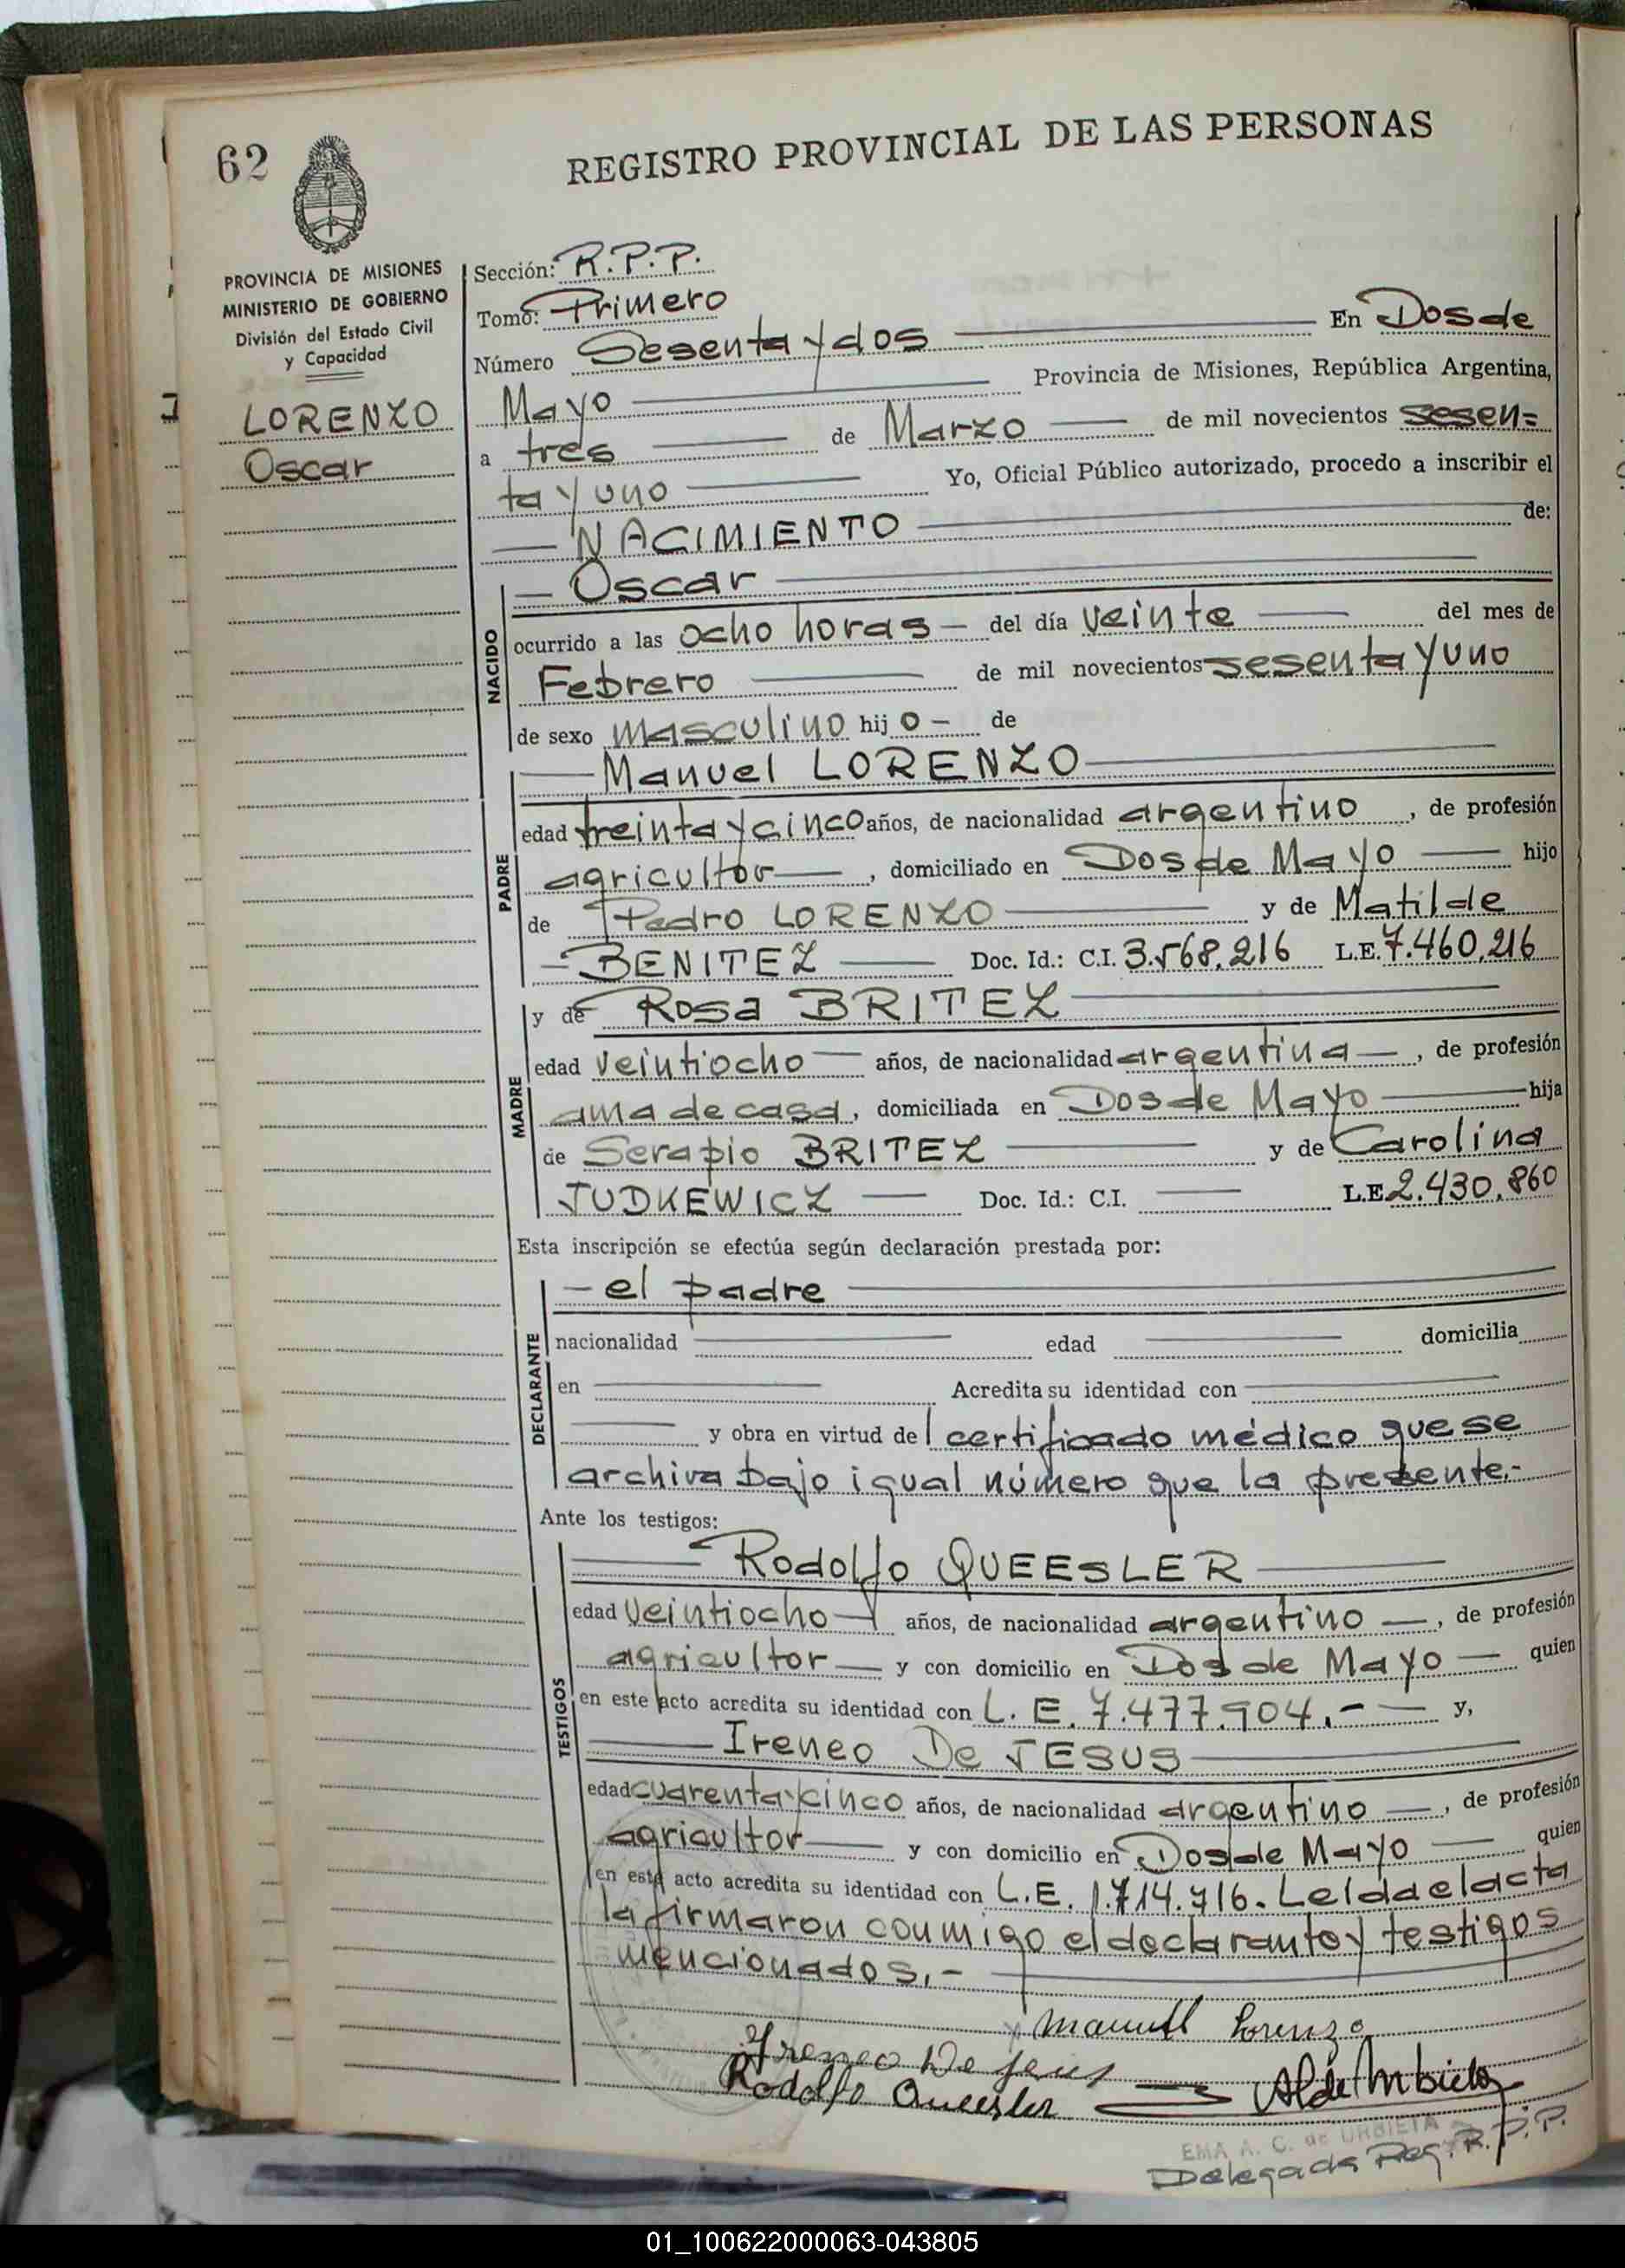 62
REGISTRO PROVINCIAL DE LAS PERSONAS
PROVINCIA DE MISIONES
MINISTERIO DE GOBIERNO
División del Estado Civil
y Capacidad
LORENZO
Oscar
Sección: R.P.P.
Tomo: Primero
Número Sesenta y dos En Dos de
Mayo Provincia de Misiones, República Argentina,
a tres de Marzo de mil novecientos sesen=
ta y uno Yo, Oficial Público autorizado, procedo a inscribir el
NACIMIENTO de:
NACIDO
Oscar
ocurrido a las ocho horas del día veinte del mes de
Febrero de mil novecientos sesenta y uno
de sexo masculino hij o de
PADRE
Manuel LORENZO
edad treinta y cinco años, de nacionalidad argentino, de profesión
agricultor, domiciliado en Dos de Mayo hijo
de Pedro LORENZO y de Matilde
BENITEZ Doc. Id.: C.I. 3.568.216 L.E. 7.460.216
MADRE
y de Rosa BRITEZ
edad veintiocho años, de nacionalidad argentina, de profesión
ama de casa, domiciliada en Dos de Mayo hija
de Serapio BRITEZ y de Carolina
JUDKEWICZ Doc. Id.: C.I. L.E. 2.430.860
Esta inscripción se efectúa según declaración prestada por:
DECLARANTE
el padre
nacionalidad edad domicilia
en Acredita su identidad con
y obra en virtud de l certificado médico que se
archiva bajo igual número que la presente.-
Ante los testigos:
TESTIGOS
Rodolfo QUEESLER
edad veintiocho años, de nacionalidad argentino, de profesión
agricultor y con domicilio en Dos de Mayo quien
en este acto acredita su identidad con L.E. 7.477.904.- y,
Ireneo De JESUS
edad cuarenta y cinco años, de nacionalidad argentino, de profesión
agricultor y con domicilio en Dos de Mayo quien
en este acto acredita su identidad con L.E. 1.714.716. Leida el acta
la firmaron conmigo el declarante y testigos
mencionados.-
Manuel Lorenzo
Ireneo De Jesus
Rodolfo Queesler
EMA A. C. de URBIETA
Delegada Reg. R.P.P.
01_100622000063-043805